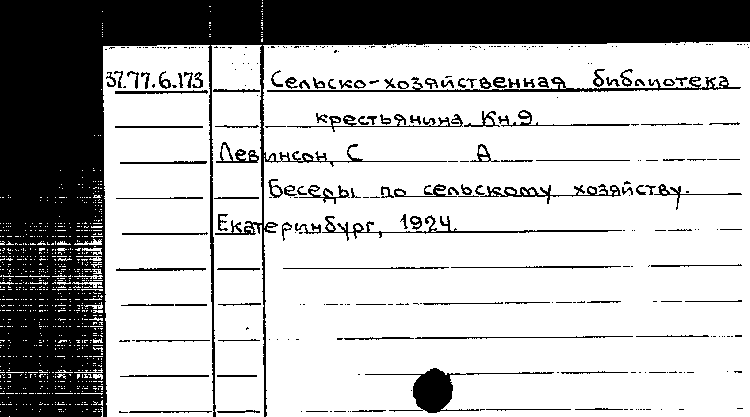 37.77.6.173 Сельско-хозяйственная библиотека
крестьянина. Кн.9.
Левинсон, С А
Беседы по сельскому хозяйству.
Екатеринбург, 1924.